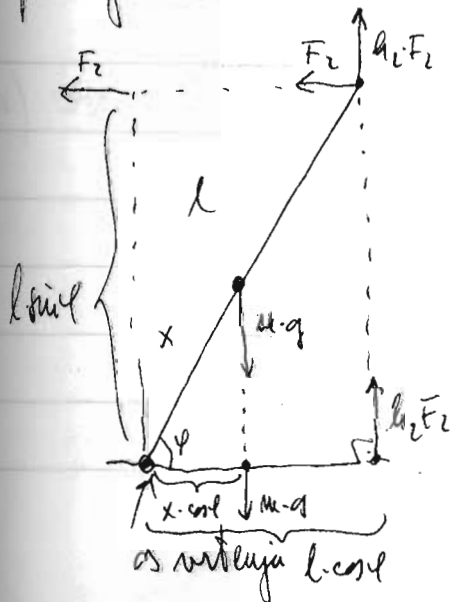 F₂
F₂
h₂·F₂
l
l·sinφ
x
m·g
h₂F₂
φ
x·cosφ
m·g
os vrtenja
l·cosφ